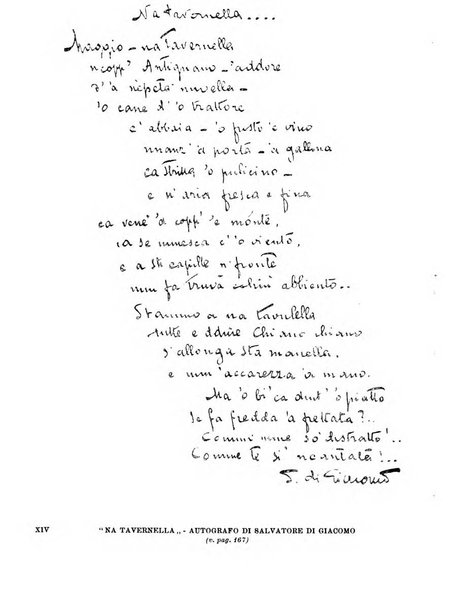 Na tavernella....
Maggio – na Tavernella
ncopp' Antignano – 'addore
d' 'a nepeta nuvella –
'o cane d' 'o trattore
c' abbaia – 'o fusto 'e vino
nnanz' 'a porta – 'a gallina
ca strilla 'o pulicino –
e n'aria fresca e fina
ca vene 'a copp' 'e monte,
ca se mmesca c' 'o viento,
e a sti capille nfronte
nun fa truvà cchiù abbiento...
Stammo a na tavulella
tutte e dduie. Chiano chiano
s'allonga sta manella,
e mm'accarezza 'a mano.
Ma 'o bi' ca dint' 'o piatto
se fa fredda 'a frettata?..
Comme me so' distratto!..
Comme te si' ncantata!...
S. di Giacomo
XIV "NA TAVERNELLA„ - AUTOGRAFO DI SALVATORE DI GIACOMO
(v. pag. 167)